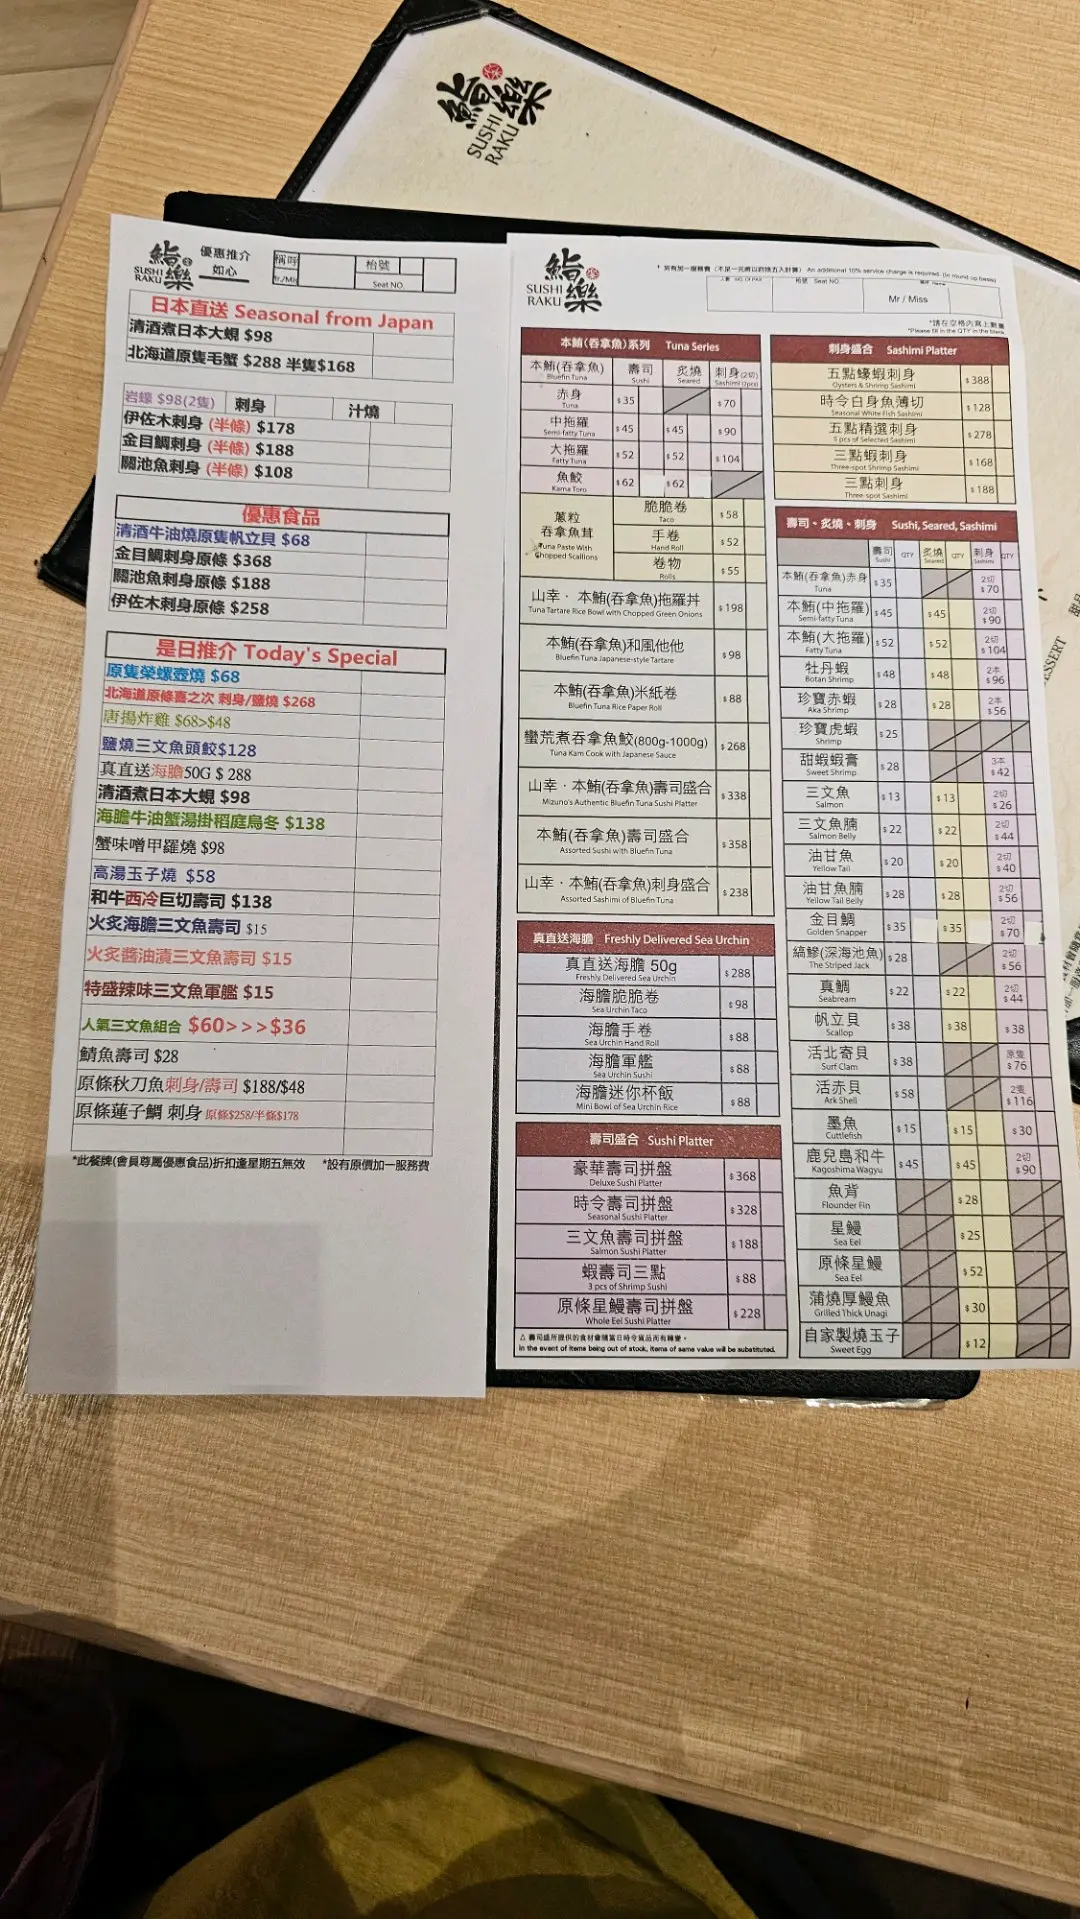 鮨樂
SUSHI
RAKU
鮨樂
SUSHI
RAKU
優惠推介
如心
稱呼
枱號
Seat NO.
日本直送 Seasonal from Japan
清酒煮日本大蜆 $98
北海道原隻毛蟹 $288 半隻$168
岩蠔 $98(2隻) 刺身 汁燒
伊佐木刺身 (半條) $178
金目鯛刺身 (半條) $188
關池魚刺身 (半條) $108
優惠食品
清酒牛油燒原隻帆立貝 $68
金目鯛刺身原條 $368
關池魚刺身原條 $188
伊佐木刺身原條 $258
是日推介 Today's Special
原隻榮螺壺燒 $68
北海道原條喜之次 刺身/鹽燒 $268
唐揚炸雞 $68>$48
鹽燒三文魚頭鮫$128
真直送海膽50G $ 288
清酒煮日本大蜆 $98
海膽牛油蟹湯掛稻庭烏冬 $138
蟹味噌甲羅燒 $98
高湯玉子燒 $58
和牛西冷巨切壽司 $138
火炙海膽三文魚壽司 $15
火炙醬油漬三文魚壽司 $15
特盛辣味三文魚軍艦 $15
人氣三文魚組合 $60>>>$36
鯖魚壽司 $28
原條秋刀魚刺身/壽司 $188/$48
原條蓮子鯛 刺身 原條$258/半條$178
*此餐牌(會員尊屬優惠食品)折扣逢星期五無效 *設有原價加一服務費
鮨樂
SUSHI
RAKU
An additional 10% service charge is required. (to round up basis)
枱號 Seat NO.
Mr / Miss
*請在空格內寫上數量
*Please fill in the QTY in the blank
本鮪(吞拿魚)系列 Tuna Series
本鮪(吞拿魚) 壽司 炙燒 刺身(2切)
Bluefin Tuna Sushi Seared Sashimi (2pcs)
赤身 $35 $70
Tuna
中拖羅 $45 $45 $90
Semi-fatty Tuna
大拖羅 $52 $52 $104
Fatty Tuna
魚鮫 $62 $62
Kama Toro
蔥粒
吞拿魚茸
Tuna Paste With
Chopped Scallions
脆脆卷 $58
Taco
手卷 $52
Hand Roll
卷物 $55
Rolls
山幸．本鮪(吞拿魚)拖羅丼 $198
Tuna Tartare Rice Bowl with Chopped Green Onions
本鮪(吞拿魚)和風他他 $98
Bluefin Tuna Japanese-style Tartare
本鮪(吞拿魚)米紙卷 $88
Bluefin Tuna Rice Paper Roll
蠻荒煮吞拿魚鮫(800g-1000g) $268
Tuna Kam Cook with Japanese Sauce
山幸．本鮪(吞拿魚)壽司盛合 $338
Mizuno's Authentic Bluefin Tuna Sushi Platter
本鮪(吞拿魚)壽司盛合 $358
Assorted Sushi with Bluefin Tuna
山幸．本鮪(吞拿魚)刺身盛合 $238
Assorted Sashimi of Bluefin Tuna
真直送海膽 Freshly Delivered Sea Urchin
真直送海膽 50g $288
Freshly Delivered Sea Urchin
海膽脆脆卷 $98
Sea Urchin Taco
海膽手卷 $88
Sea Urchin Hand Roll
海膽軍艦 $88
Sea Urchin Sushi
海膽迷你杯飯 $88
Mini Bowl of Sea Urchin Rice
壽司盛合 Sushi Platter
豪華壽司拼盤 $368
Deluxe Sushi Platter
時令壽司拼盤 $328
Seasonal Sushi Platter
三文魚壽司拼盤 $188
Salmon Sushi Platter
蝦壽司三點 $88
3 pcs of Shrimp Sushi
原條星鰻壽司拼盤 $228
Whole Eel Sushi Platter
△ 壽司盛所提供的食材會隨當日時令貨品而有轉變。
In the event of items being out of stock, items of same value will be substituted.
刺身盛合 Sashimi Platter
五點蠔蝦刺身 $388
Oysters & Shrimp Sashimi
時令白身魚薄切 $128
Seasonal White Fish Sashimi
五點精選刺身 $278
5 pcs of Selected Sashimi
三點蝦刺身 $168
Three-spot Shrimp Sashimi
三點刺身 $188
Three-spot Sashimi
壽司、炙燒、刺身 Sushi, Seared, Sashimi
壽司 QTY 炙燒 QTY 刺身 QTY
Sushi Seared Sashimi
本鮪(吞拿魚)赤身 $35 2切 $70
Tuna
本鮪(中拖羅) $45 $45 2切 $90
Semi-fatty Tuna
本鮪(大拖羅) $52 $52 2切 $104
Fatty Tuna
牡丹蝦 $48 $48 2本 $96
Botan Shrimp
珍寶赤蝦 $28 $28 2本 $56
Aka Shrimp
珍寶虎蝦 $25
Shrimp
甜蝦蝦膏 $28 3本 $42
Sweet Shrimp
三文魚 $13 $13 2切 $26
Salmon
三文魚腩 $22 $22 2切 $44
Salmon Belly
油甘魚 $20 $20 2切 $40
Yellow Tail
油甘魚腩 $28 $28 2切 $56
Yellow Tail Belly
金目鯛 $35 $35 2切 $70
Golden Snapper
縞鰺(深海池魚) $28 2切 $56
The Striped Jack
真鯛 $22 $22 2切 $44
Seabream
帆立貝 $38 $38 $38
Scallop
活北寄貝 $38 原隻 $76
Surf Clam
活赤貝 $58 2隻 $116
Ark Shell
墨魚 $15 $15 $30
Cuttlefish
鹿兒島和牛 $45 $45 2切 $90
Kagoshima Wagyu
魚背 $28
Flounder Fin
星鰻 $25
Sea Eel
原條星鰻 $52
Sea Eel
蒲燒厚鰻魚 $30
Grilled Thick Unagi
自家製燒玉子 $12
Sweet Egg
甜品
ESSERT